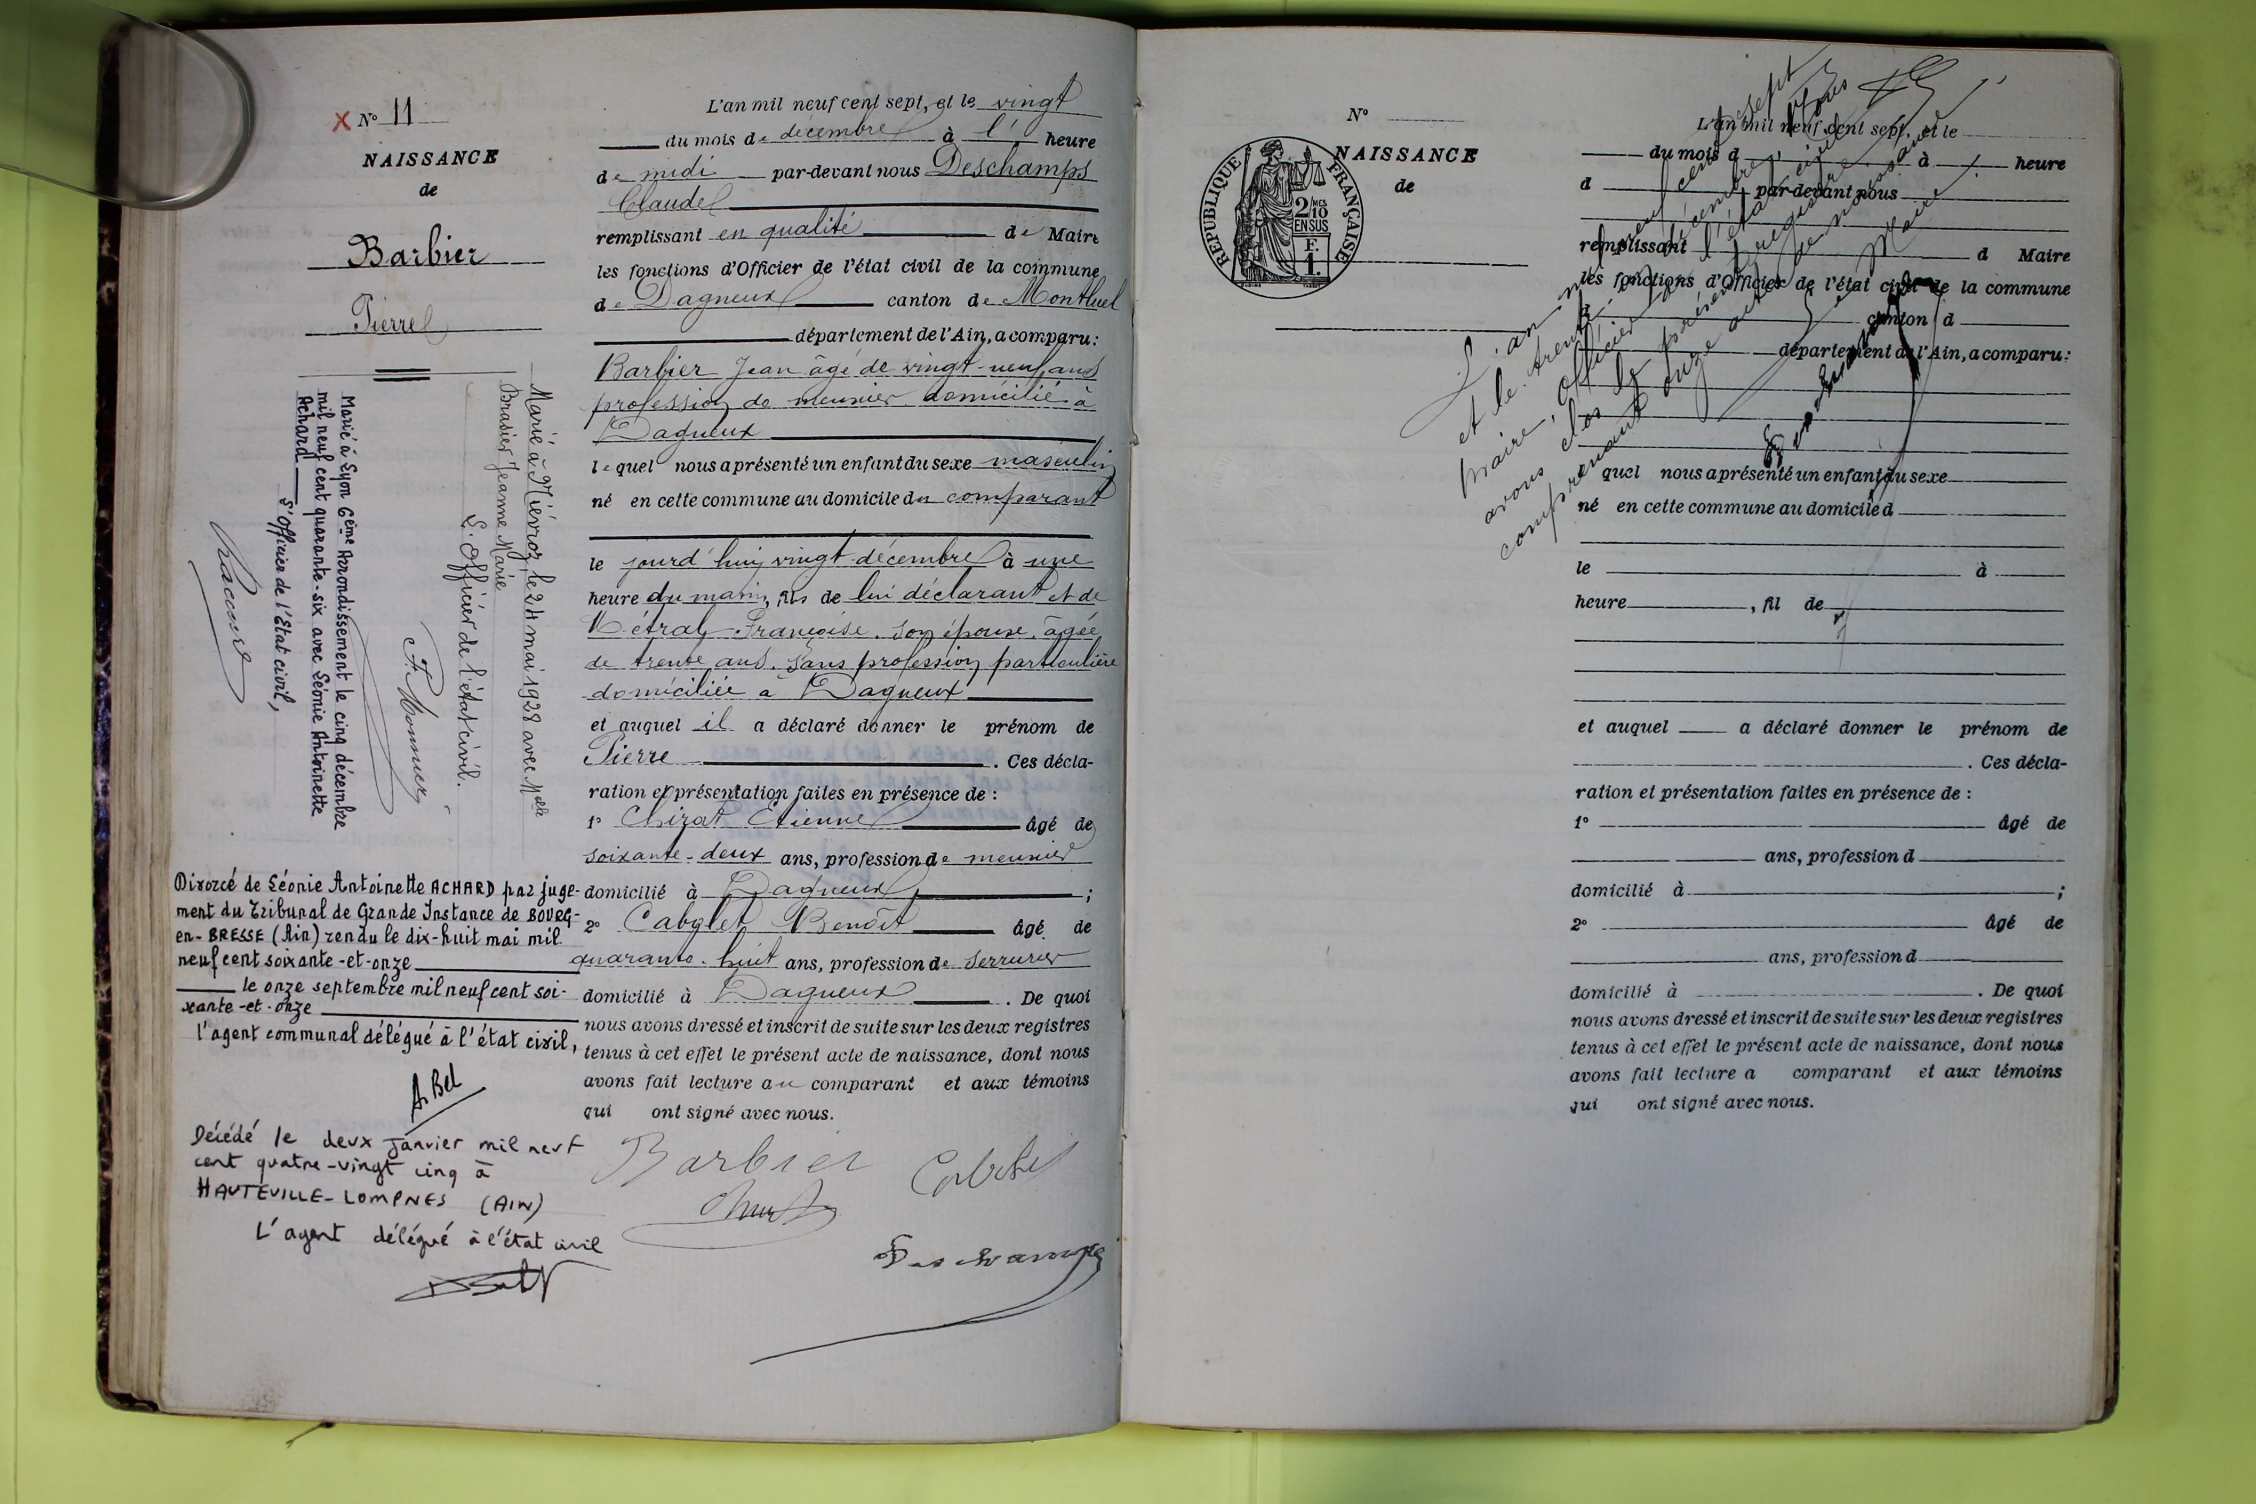 X N° 11
NAISSANCE
de
Barbier
Pierre
Marié à Niévroz le 24 mai 1928 avec Melle
Brasier Jeanne Marie
L'officier de l'état civil.
F. Monnier
Marié à Lyon 6ème Arrondissement le cinq décembre
mil neuf cent quarante-six avec Léonie Antoinette
Achard
L'officier de l'Etat civil,
Divorcé de Léonie Antoinette ACHARD par juge-
ment du Tribunal de Grande Instance de BOURG-
en-BRESSE (Ain) rendu le dix-huit mai mil
neuf cent soixante-et-onze
le onze septembre mil neuf cent soi-
xante-et-onze
l'agent communal délégué à l'état civil,
A. Bel
Décédé le deux janvier mil neuf
cent quatre-vingt cinq à
HAUTEVILLE-LOMPNES (AIN)
L'agent délégué à l'état civil
L'an mil neuf cent sept, et le vingt
du mois de décembre à l' heure
de midi par-devant nous Deschamps
Claude
remplissant en qualité de Maire
les fonctions d'Officier de l'état civil de la commune
de Dagneux canton de Montluel
département de l'Ain, a comparu:
Barbier Jean âgé de vingt-neuf ans
profession de meunier domicilié à
Dagneux
lequel nous a présenté un enfant du sexe masculin
né en cette commune au domicile du comparant
le jourd'hui vingt décembre à une
heure du matin, fils de lui déclarant et de
Métral Françoise son épouse, âgée
de trente ans, sans profession particulière
domiciliée à Dagneux
et auquel il a déclaré donner le prénom de
Pierre . Ces décla-
ration et présentation faites en présence de :
1° Chizat Etienne âgé de
soixante-deux ans, profession de meunier
domicilié à Dagneux ;
2° Benoît âgé de
quarante-huit ans, profession de serrurier
domicilié à Dagneux . De quoi
nous avons dressé et inscrit de suite sur les deux registres
tenus à cet effet le présent acte de naissance, dont nous
avons fait lecture au comparant et aux témoins
qui ont signé avec nous.
Barbier
Deschamps
N°
NAISSANCE
de
RÉPUBLIQUE FRANÇAISE
2/10 MES
EN SUS
F.
1.
L'an mil neuf cent sept, et le
du mois d à heure
d par-devant nous
remplissant d Maire
les fonctions d'Officier de l'état civil de la commune
d canton d
département de l'Ain, a comparu:
quel nous a présenté un enfant du sexe
né en cette commune au domicile d
le à
heure , fil de
et auquel a déclaré donner le prénom de
. Ces décla-
ration et présentation faites en présence de :
1° âgé de
ans, profession d
domicilié à ;
2° âgé de
ans, profession d
domicilié à . De quoi
nous avons dressé et inscrit de suite sur les deux registres
tenus à cet effet le présent acte de naissance, dont nous
avons fait lecture a comparant et aux témoins
qui ont signé avec nous.
L'an mil neuf cent sept
et le trente décembre, nous
maire, officier de l'état civil
avons clos le présent registre
comprenant onze actes de naissance
Le Maire.